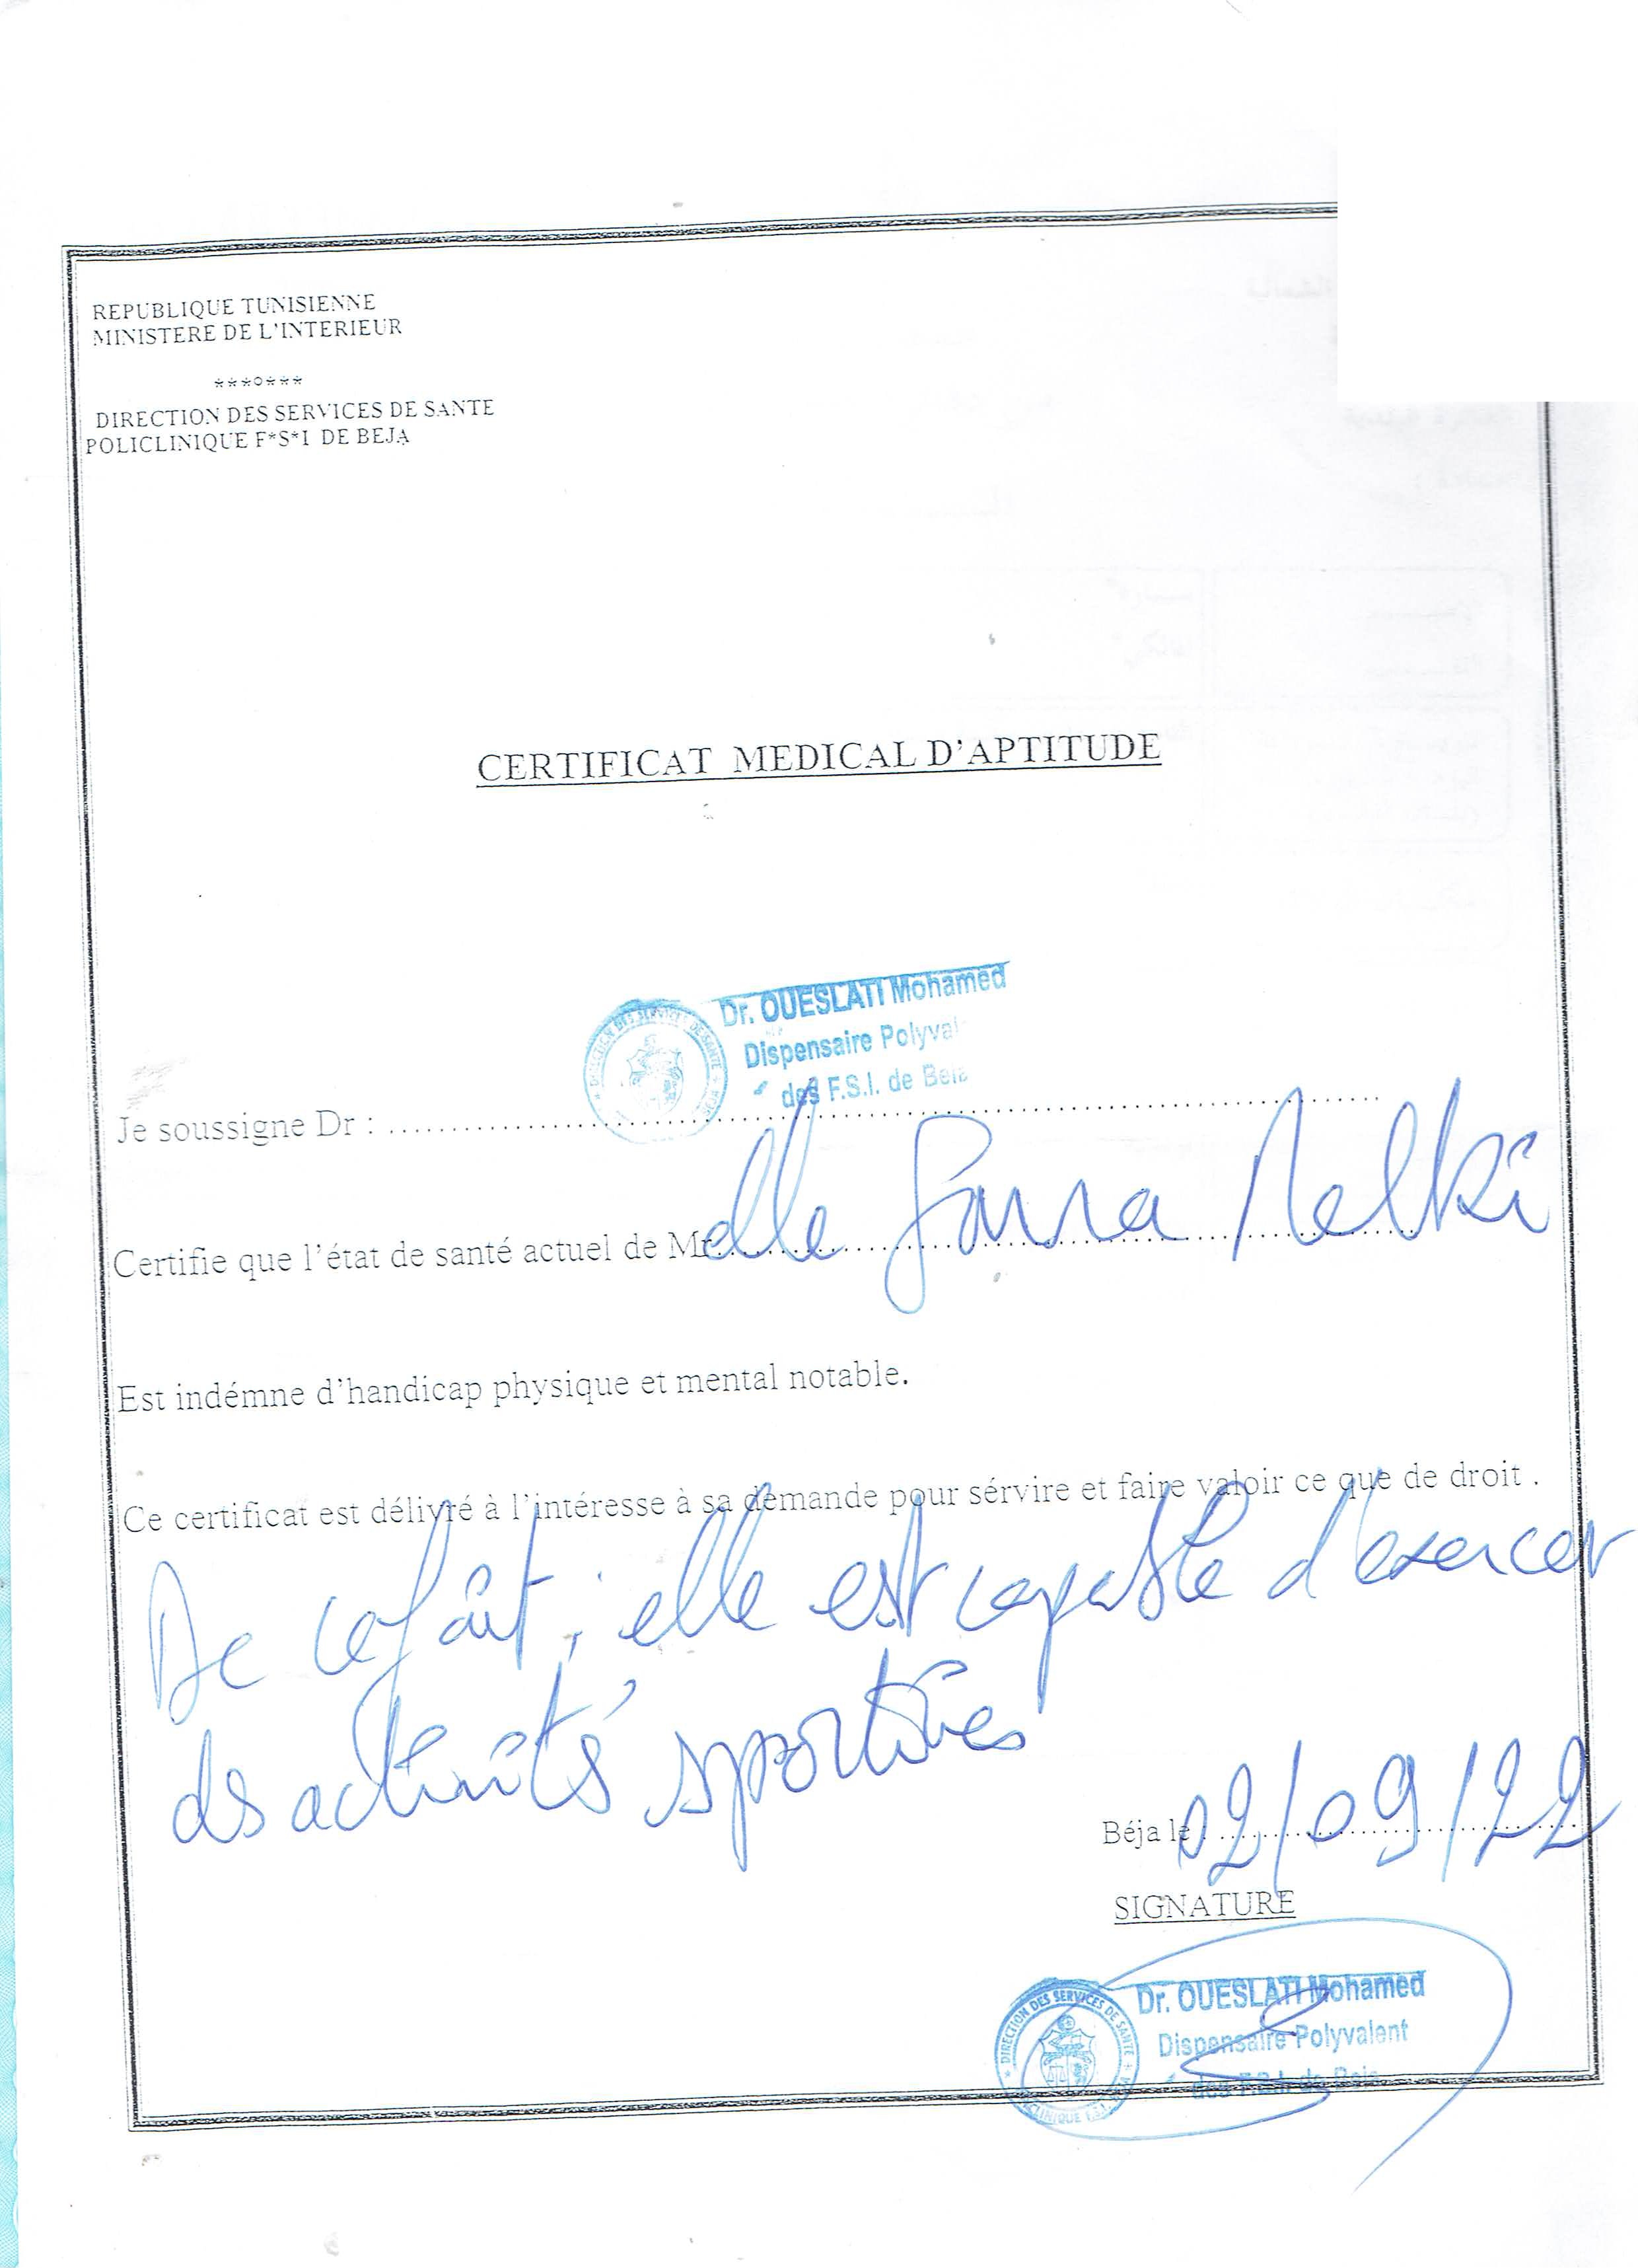 REPUBLIQUE TUNISIENNE
MINISTERE DE L'INTERIEUR
***o***
DIRECTION DES SERVICES DE SANTE
POLICLINIQUE F*S*I DE BEJA
CERTIFICAT MEDICAL D'APTITUDE
Dr. OUESLATI Mohamed
Dispensaire Polyval
des F.S.I. de Beja
DIRECTION DES SERVICES DE SANTE
Je soussigne Dr :
Certifie que l'état de santé actuel de Mr elle Sarra Melki
Est indémne d'handicap physique et mental notable.
Ce certificat est délivré à l'intéresse à sa demande pour sérvire et faire valoir ce que de droit .
De ce fait, elle est capable d'exercer
des activités sportives
Béja le : 02/09/22
SIGNATURE
Dr. OUESLATI Mohamed
Dispensaire Polyvalent
des F.S.I. de Beja
DIRECTION DES SERVICES DE SANTE